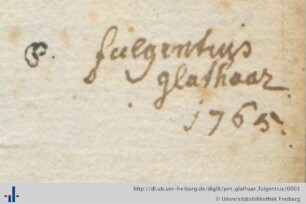 P. fulgentius
glathaar
1765.
http://dl.ub.uni-freiburg.de/diglit/pm_glathaar_fulgentius/0001
© Universitätsbibliothek Freiburg